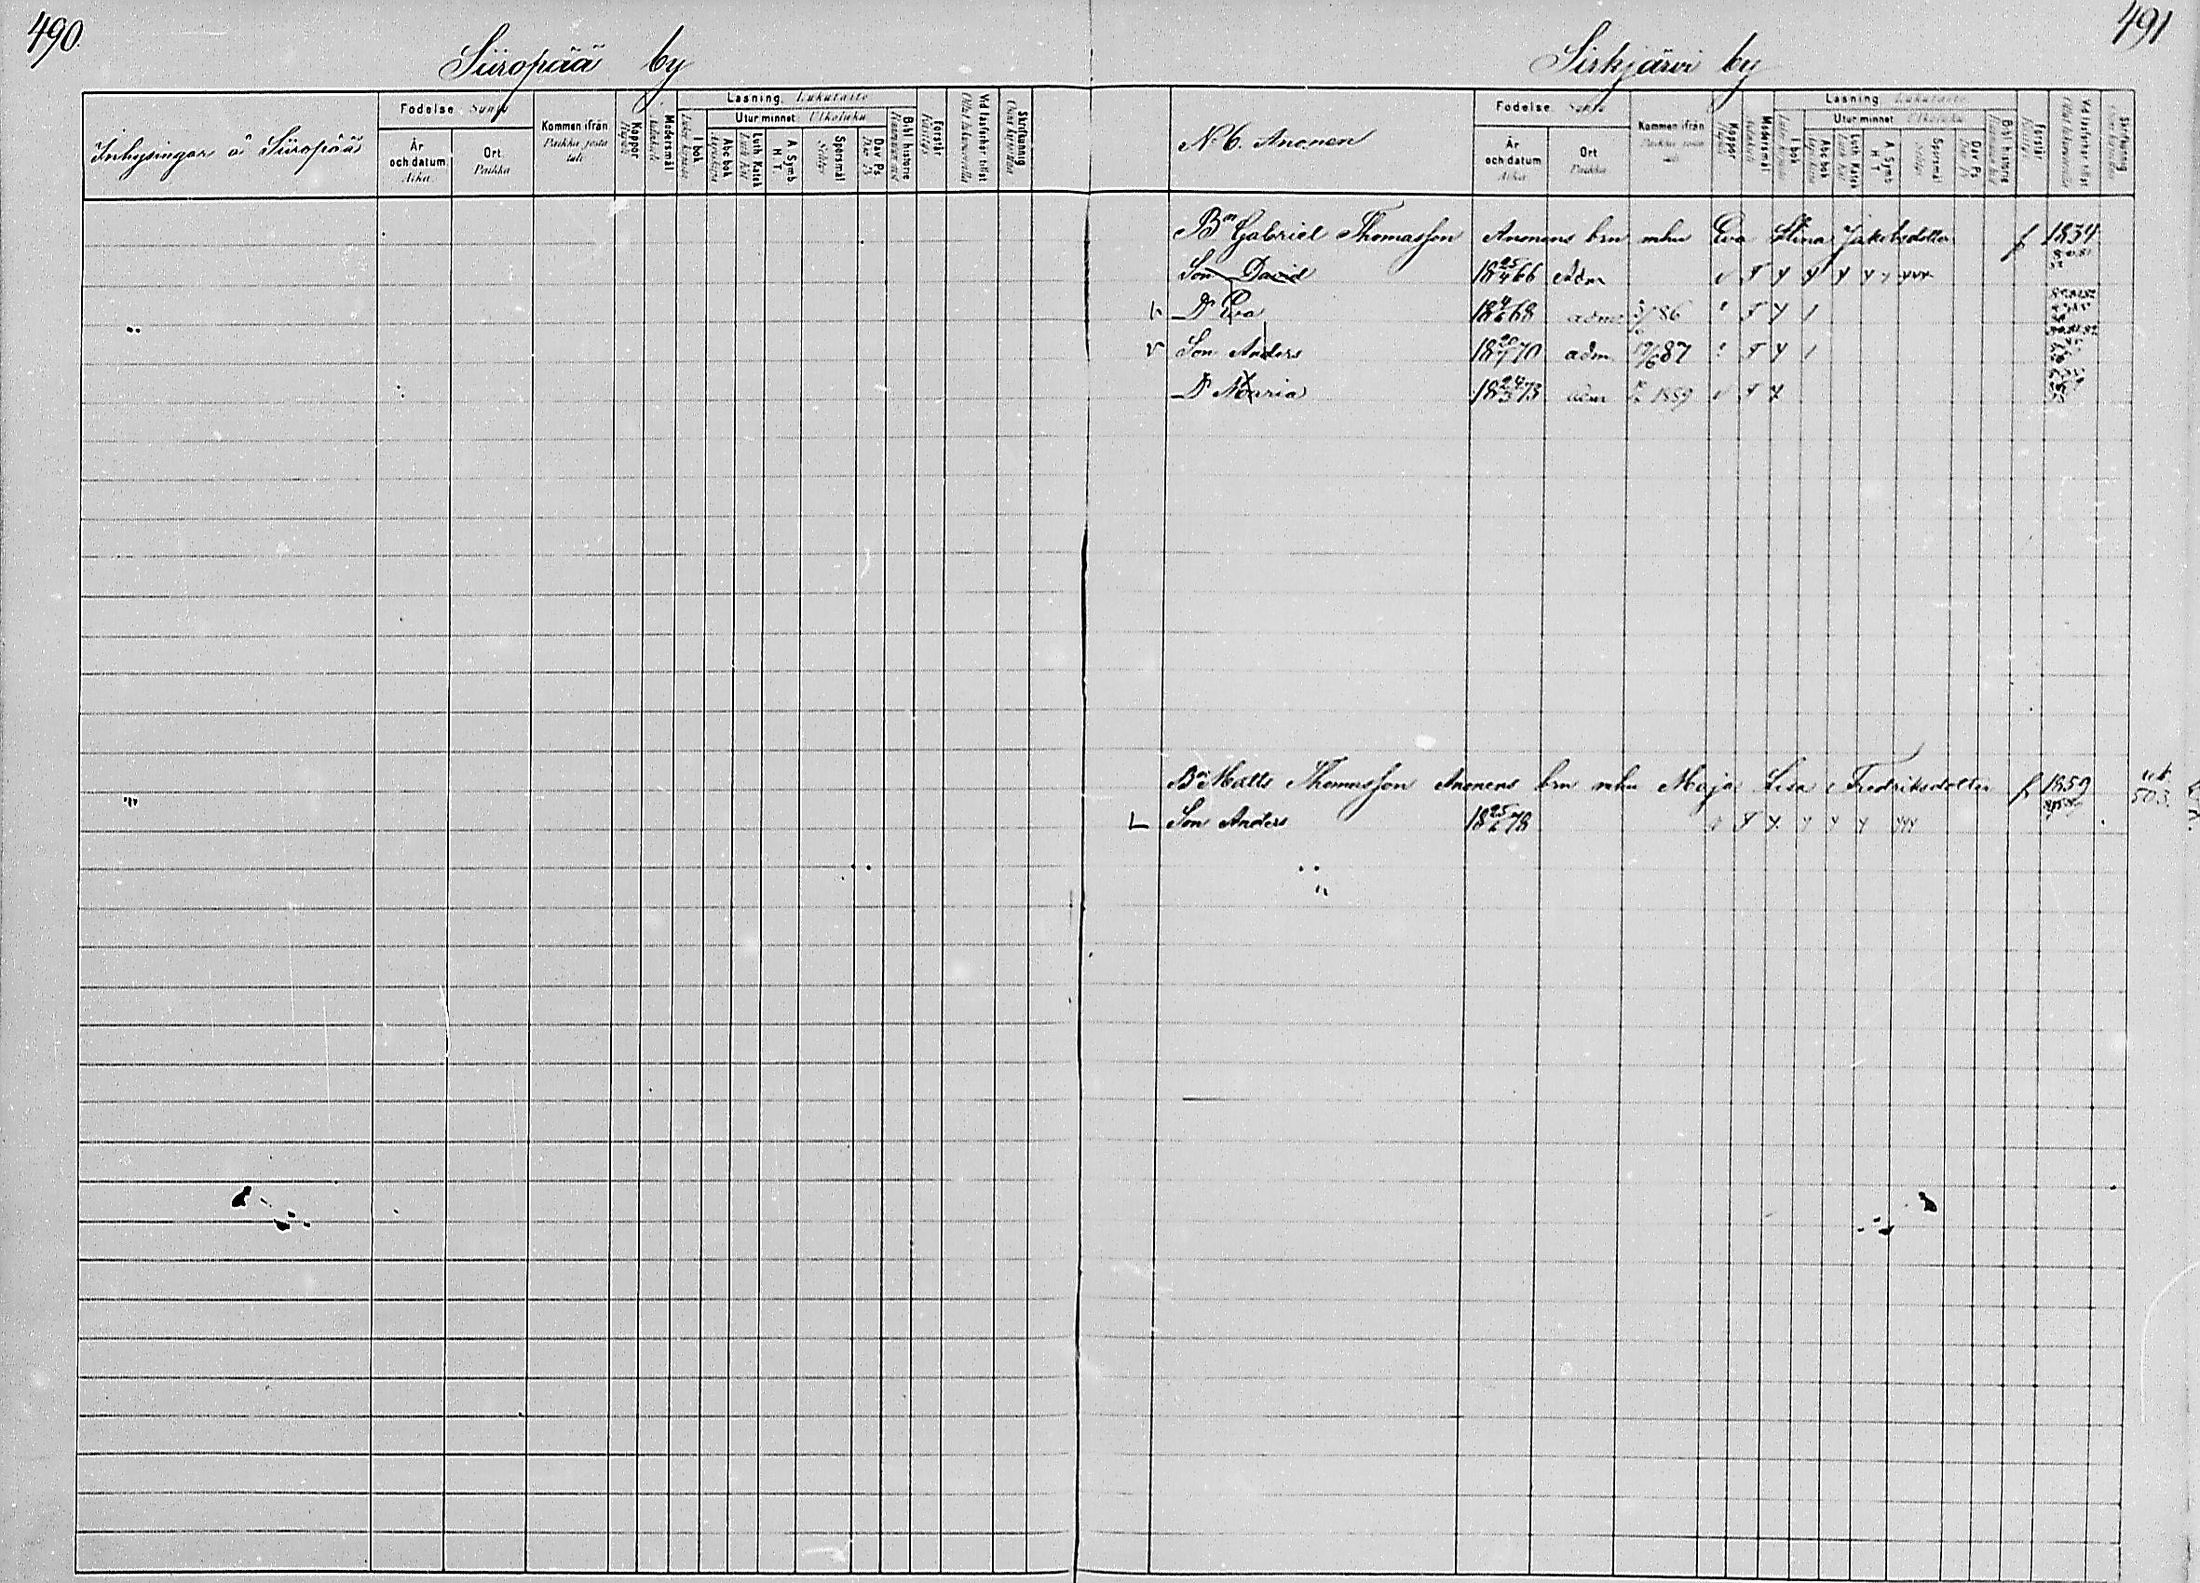 490.
Siiropää by
Inhysingar å Siiropää
Födelse Synty
År och datum Aika
Ort Paikka
Kommen ifrån Paikka josta tuli
Koppor Rupuli
Modersmål
Läsning. Lukutaito
I bok
Utur minnet Ulkoluku
Abc bok
Luth Katek
A Symb H T
Spörsmål
Dav Ps
Bibl historie
Förstår
Vid läsförhör tillst
Skrifkunnig
491
Sirkjärvi by
N. 6. Anonen
Födelse Synty
År och datum Aika
Ort Paikka
Kommen ifrån
Koppor
Modersmål
Läsning Lukutaito
I bok
Utur minnet Ulkoluku
Abc bok
Luth Katek
A Symb H T
Spörsmål
Dav Ps
Bibl historie
Förstår
Vid läsförhör tillst
Skrifkunnig
Bn Gabriel Thomasson Anonens brn mhu Eva Stina Jakobsdotter f 1834
Son David 18 25/4 66 adm
D Eva 18 4/6 68 adm 86
Son Anders 18 20/7 70 adm 87
D Maria 18 24/3 73 adm 1889
Bn Matts Thomasson Anonens brn mhu Maja Lisa Fredriksdotter f 1859
503.
Son Anders 18 25/6 78